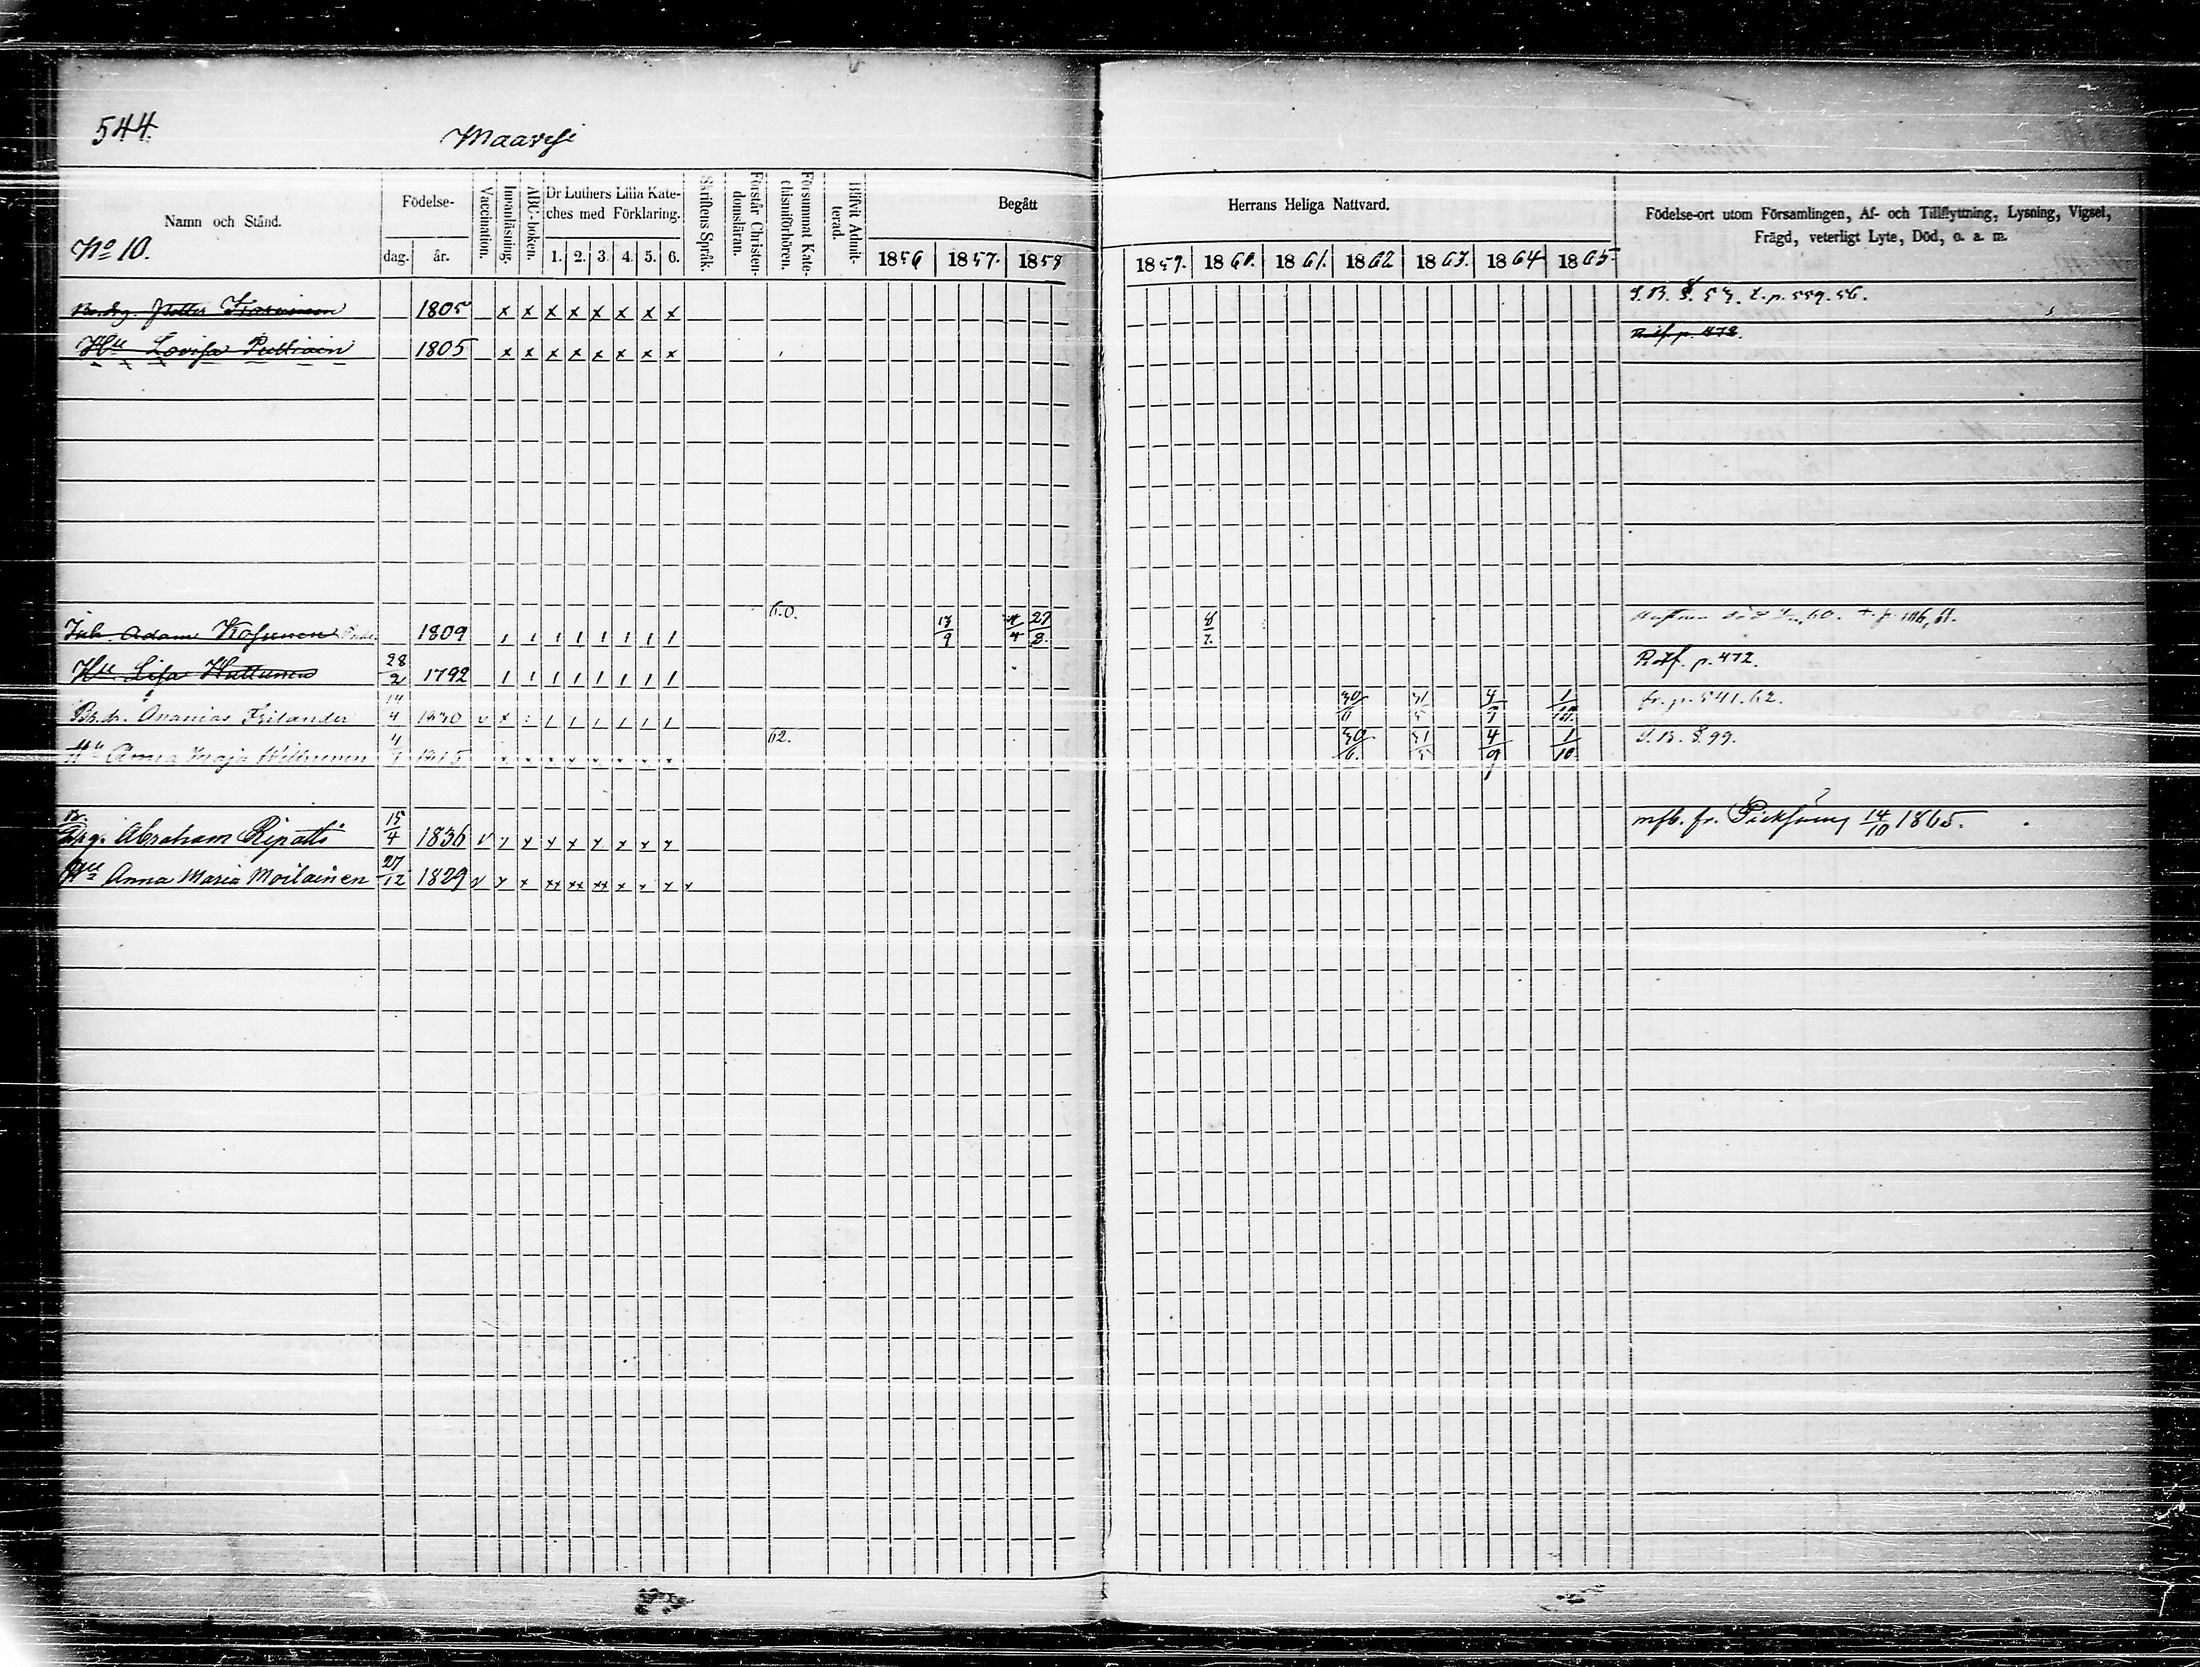 544.
Maavesi
Namn och Stånd.
No 10.
Födelse-
dag. år.
Vaccination.
Innanläsning.
ABC-boken.
Dr Luthers Lilla Kate-
ches med Förklaring.
1. 2. 3. 4. 5. 6.
Skriftens Språk.
Förstår Christen-
domsläran.
Försummat Kate-
chismiförhören.
Blifvit Admit-
terad.
Begått
1856 1857. 1858
Herrans Heliga Nattvard.
1859. 1860. 1861. 1862 1863. 1864 1865
Födelse-ort utom Församlingen, Af- och Tillflyttning, Lysning, Vigsel,
Frägd, veterligt Lyte, Död, o. a. m.
Petter 1805 x x x x x x x x
Hu Lovisa Pulliain 1805 x x x x x x x x
Inh. Adam Kosunen 1809 60. 27/8
Hu Lisa Huttunen 28/2 1792 R. p. 472.
Ananias Frilander 14/4 1830 v 30/6 31/5 4/9 1/10 fr. p. 541. 62.
Hu Anna Maja 62. 30/6. 31/5 4/9 1/10 S. B. 99.
Drg. Abraham Ripatti 15/4 1836 v x x x x x x x x mfb. fr. 14/10 1865.
Hu Anna Maria Moilainen 27/12 1829 v x x xx xx xx x x x x